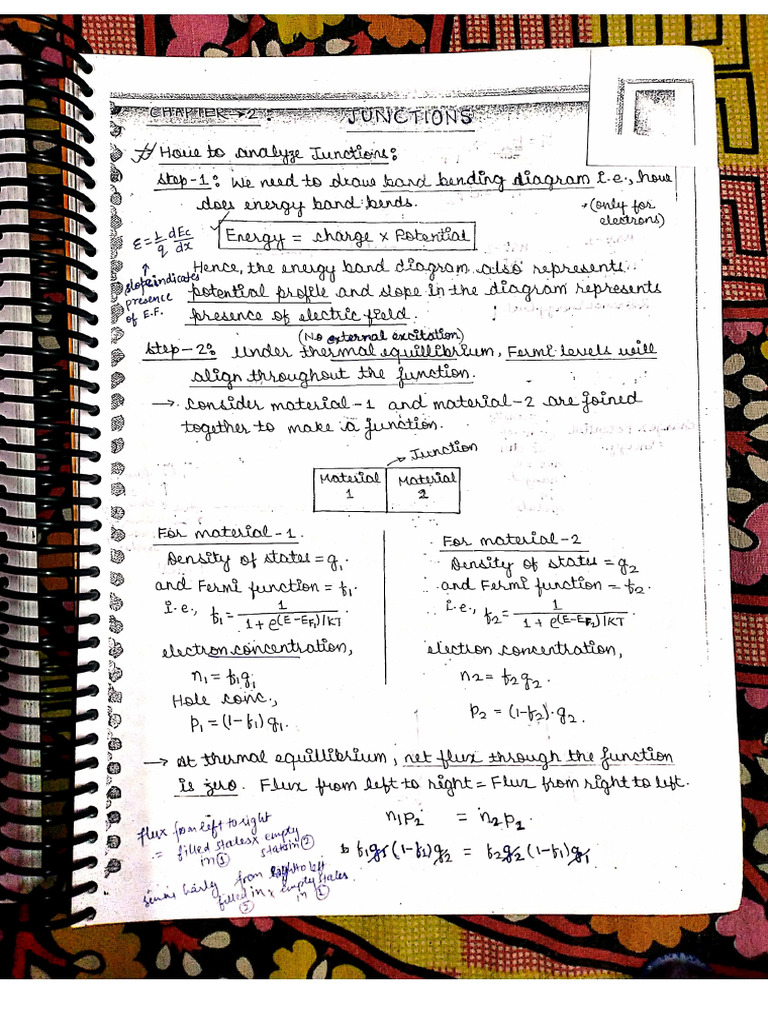 CHAPTER → 2 : JUNCTIONS
How to analyze Junctions:
Step-1: We need to draw band bending diagram i.e., how
does energy band bends.
(only for
electrons)
Energy = charge × Potential
ε = 1/q dEc/dx
↑
slope indicates
presence
of E.F.
Hence, the energy band diagram also represents
potential profile and slope in the diagram represents
presence of electric field.
(No external excitation)
Step-2: Under thermal equillibrium, Fermi levels will
align throughout the function.
→ Consider material-1 and material-2 are joined
together to make a function.
→ Junction
Material
1
Material
2
For material-1.
Density of states = g₁.
and Fermi function = f₁.
i.e., f₁ = 1 / 1 + e^(E-EF₁)/KT.
electron concentration,
n₁ = f₁g₁
Hole conc.,
p₁ = (1-f₁)g₁.
For material-2
Density of states = g₂
and Fermi function = f₂.
i.e., f₂ = 1 / 1 + e^(E-EF₂)/KT
electron concentration,
n₂ = f₂g₂.
p₂ = (1-f₂)·g₂.
→ At thermal equillibrium, net flux through the function
is zero. Flux from left to right = Flux from right to left.
n₁p₂ = n₂p₁.
f₁g₁(1-f₂)g₂ = f₂g₂(1-f₁)g₁
flux from left to right
= filled states × empty
in ① states in ②
similarly from right to left
filled in × empty states
in ①